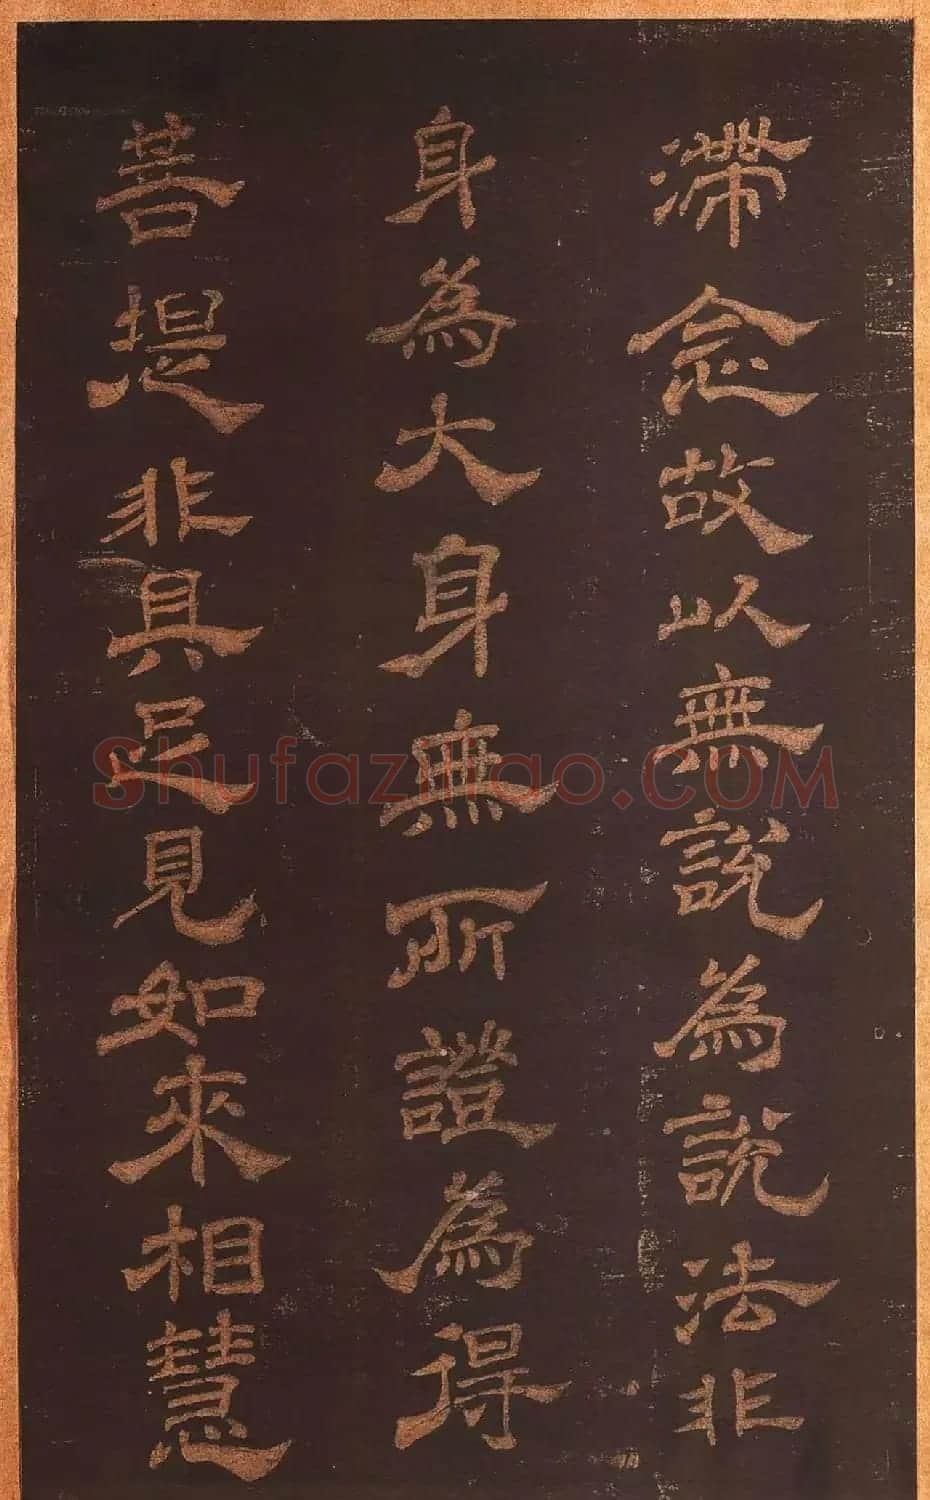 滯念故以無說為說法非
身為大身無所證為得
菩提非具足見如來相慧
Shufaziliao.COM